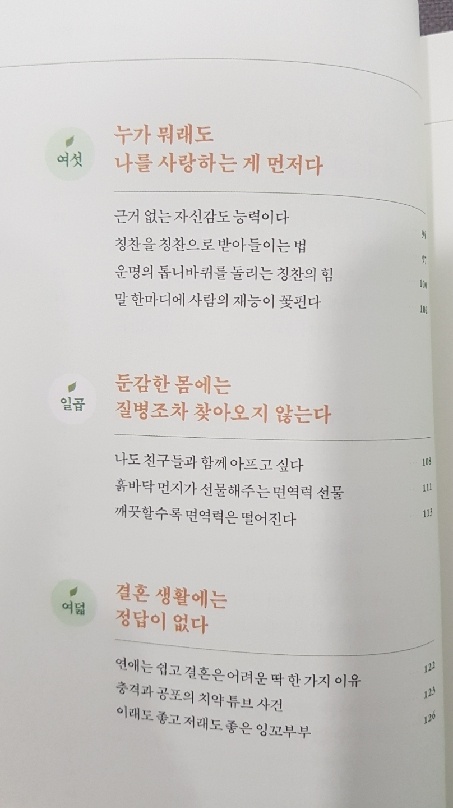 여섯
누가 뭐래도
나를 사랑하는 게 먼저다
근거 없는 자신감도 능력이다
칭찬을 칭찬으로 받아들이는 법 94
운명의 톱니바퀴를 돌리는 칭찬의 힘 97
말 한마디에 사람의 재능이 꽃핀다
일곱
둔감한 몸에는
질병조차 찾아오지 않는다
나도 친구들과 함께 아프고 싶다 108
흙바닥 먼지가 선물해주는 면역력 선물 111
깨끗할수록 면역력은 떨어진다 113
여덟
결혼 생활에는
정답이 없다
연애는 쉽고 결혼은 어려운 딱 한 가지 이유 122
충격과 공포의 치약 튜브 사건 125
이래도 좋고 저래도 좋은 잉꼬부부 126